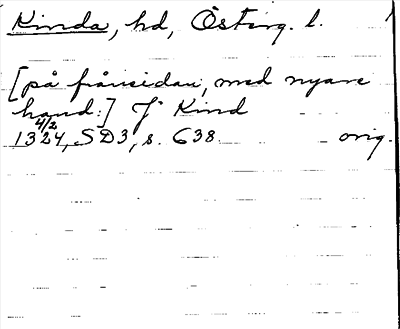 Kinda, hd, Österg. l.
[på frånsidan, med nyare
hand:] J Kind
1324 4/2, SD3, s. 638. orig.